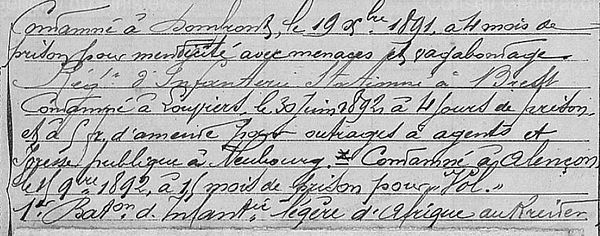 Condamné à Domfront, le 19 Xbre 1891, à 4 mois de
prison pour mendicité avec menaces et vagabondage
Régt d'Infanterie Stationné à Brest
Condamné à Louviers, le 30 Juin 1892 à 4 jours de prison
et à 5 fr. d'amende pour outrages à agents et
Ivresse publique à Neubourg. Condamné à Alençon
le 9bre 1892, à 15 mois de prison pour "Vol."
1er Baton d'Infantie légère d'Afrique au Kreider